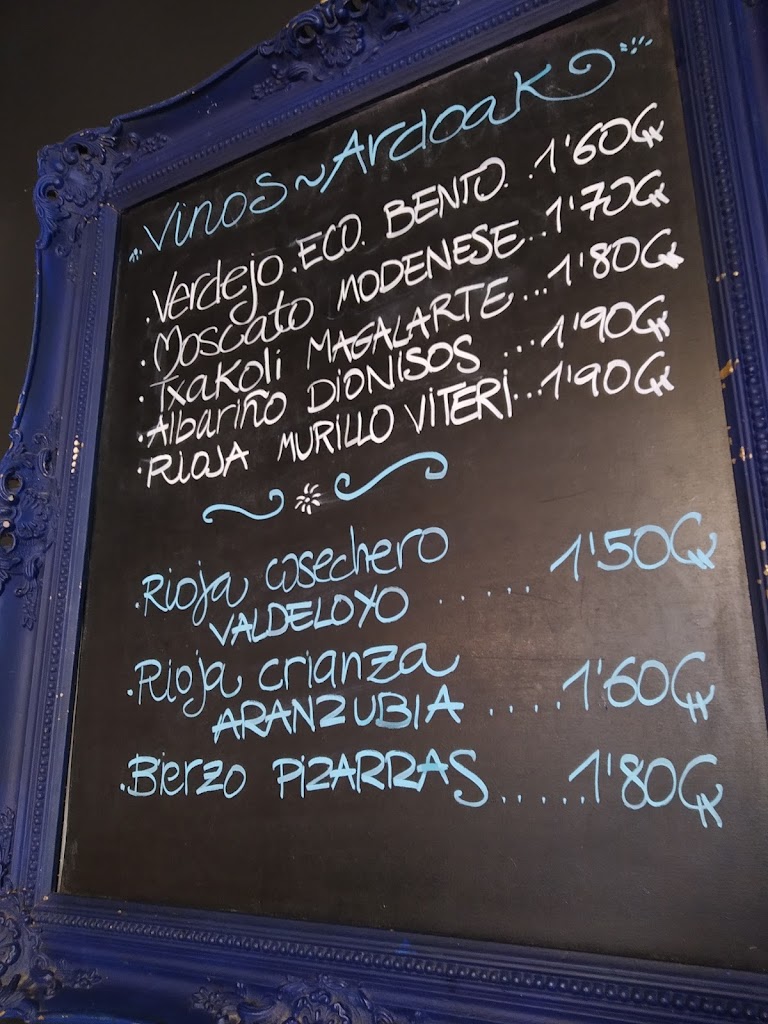 Vinos ~ Ardoak
. Verdejo . ECO. BENTO. . 1'60€
. Moscato MODENESE .. 1'70€
. Txakoli MAGALARTE ... 1'80€
. Albariño DIONISOS ... 1'90€
. RIOJA MURILLO VITERI ... 1'90€
. Rioja cosechero
VALDELOYO ...... 1'50€
. Rioja crianza
ARANZUBIA ..... 1'60€
. Bierzo PIZARRAS ...... 1'80€